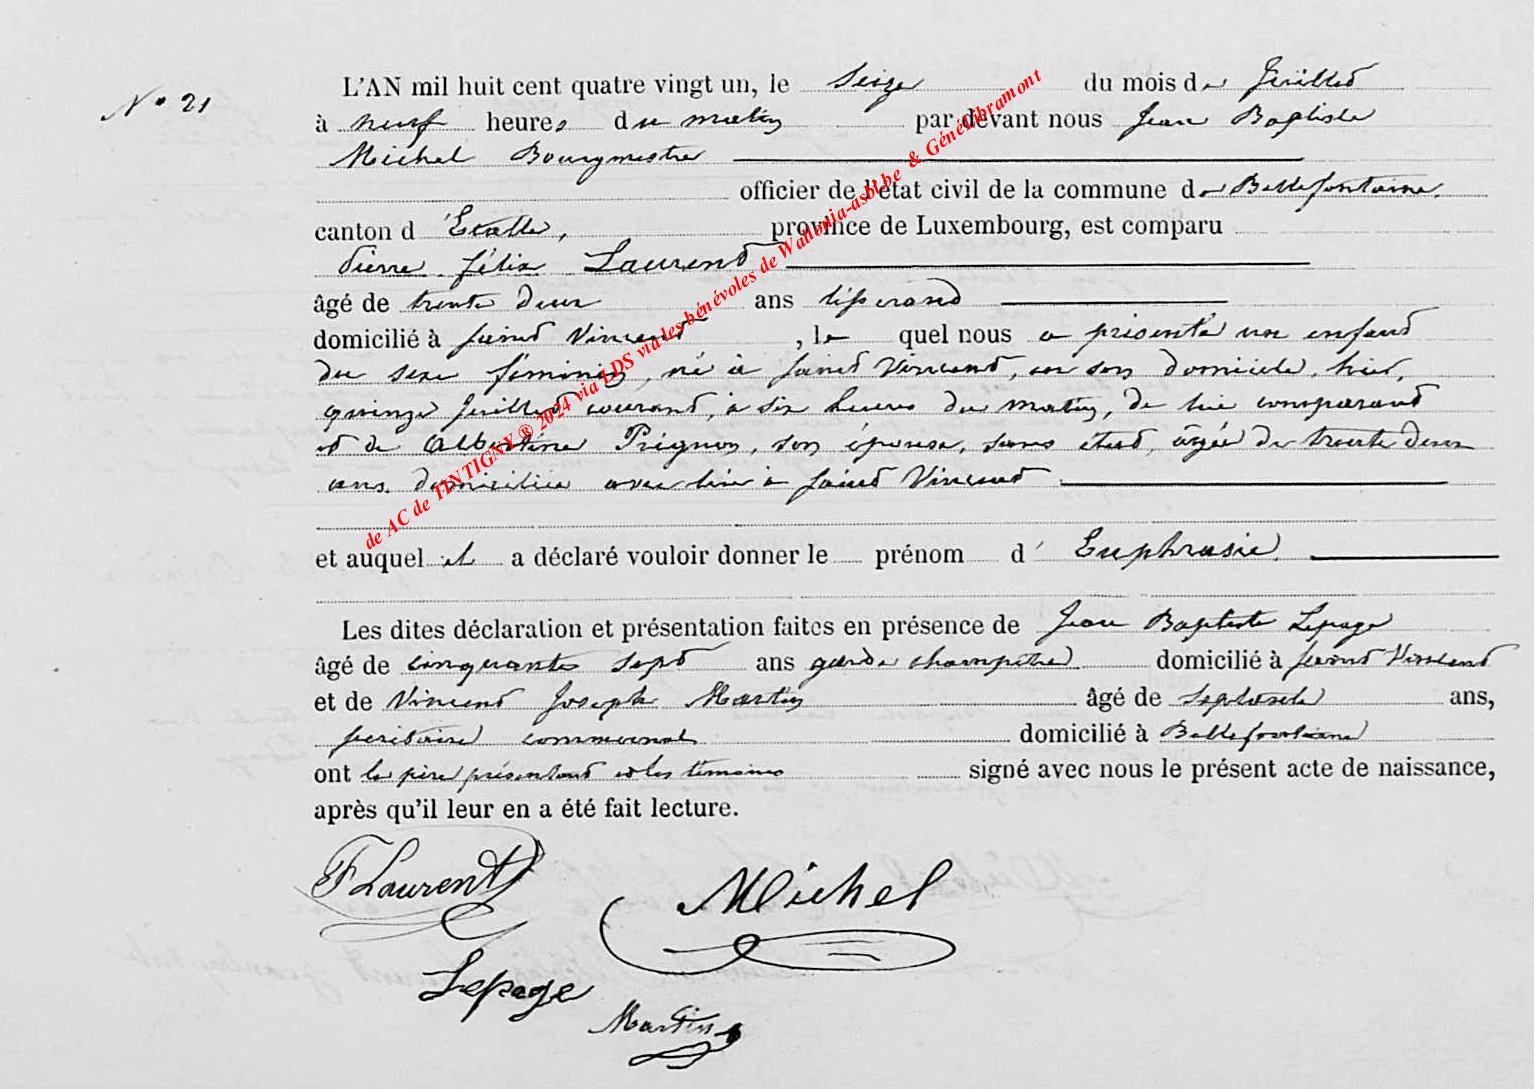 N° 21
L'AN mil huit cent quatre vingt un, le Seize du mois de Juillet
à neuf heures du matin par devant nous Jean Baptiste
Michel Bourgmestre
officier de l'état civil de la commune de Bellefontaine,
canton d'Etalle, province de Luxembourg, est comparu
Pierre Félix Laurent
âgé de trente deux ans tisserand
domicilié à Saint Vincent, le quel nous a présenté un enfant
du sexe féminin, né à Saint Vincent, en son domicile, hier,
quinze Juillet courant, à six heures du matin, de lui comparant
et de Albertine Prignon, son épouse, sans état, âgée de trente deux
ans, domiciliée avec lui à Saint Vincent
et auquel il a déclaré vouloir donner le prénom d'Euphrasie
Les dites déclaration et présentation faites en présence de Jean Baptiste Lepage
âgé de cinquante sept ans garde champêtre domicilié à Saint Vincent
et de Vincent Joseph Martin âgé de septante ans,
secrétaire communal domicilié à Bellefontaine
ont le père présentant et les témoins signé avec nous le présent acte de naissance,
après qu'il leur en a été fait lecture.
F Laurent
Michel
Lepage
Martin
de AC de TINTIGNY ® 2024 via LDS via les bénévoles de Wallonia-asbl.be & Généalibramont